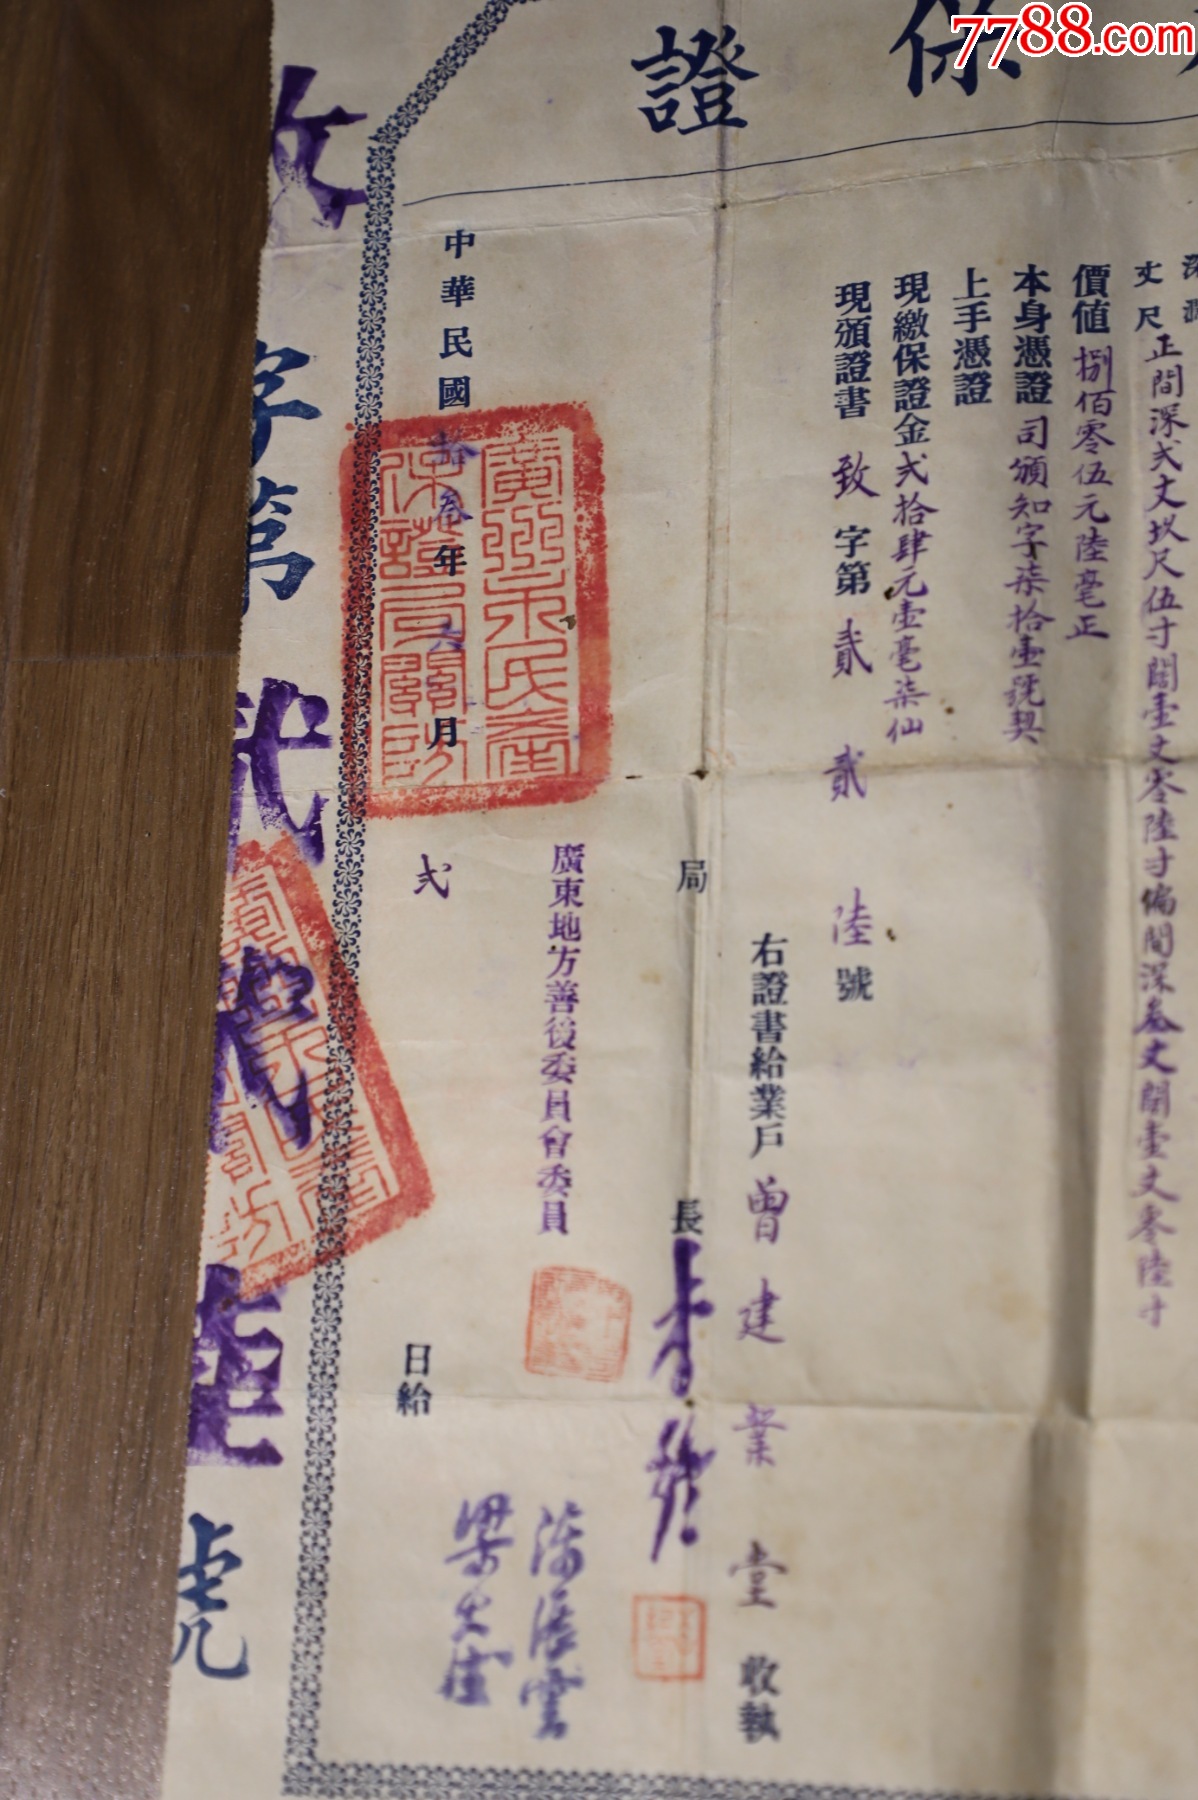 7788.com
保證
丈尺正間深弍丈玖尺伍寸闊壹丈零陸寸偏間深叁丈闊壹丈零陸寸
價値捌佰零伍元陸毫正
本身憑證司頒知字柒拾壹號契
上手憑證
現繳保證金弍拾肆元壹毫柒仙
現頒證書致字第貳貳陸號
右證書給業戶曾建業堂收執
局長李
廣東地方善後委員會委員
廣州市民產保證局關防
中華民國拾叁年六月弍日給
致字第弍弍陸號